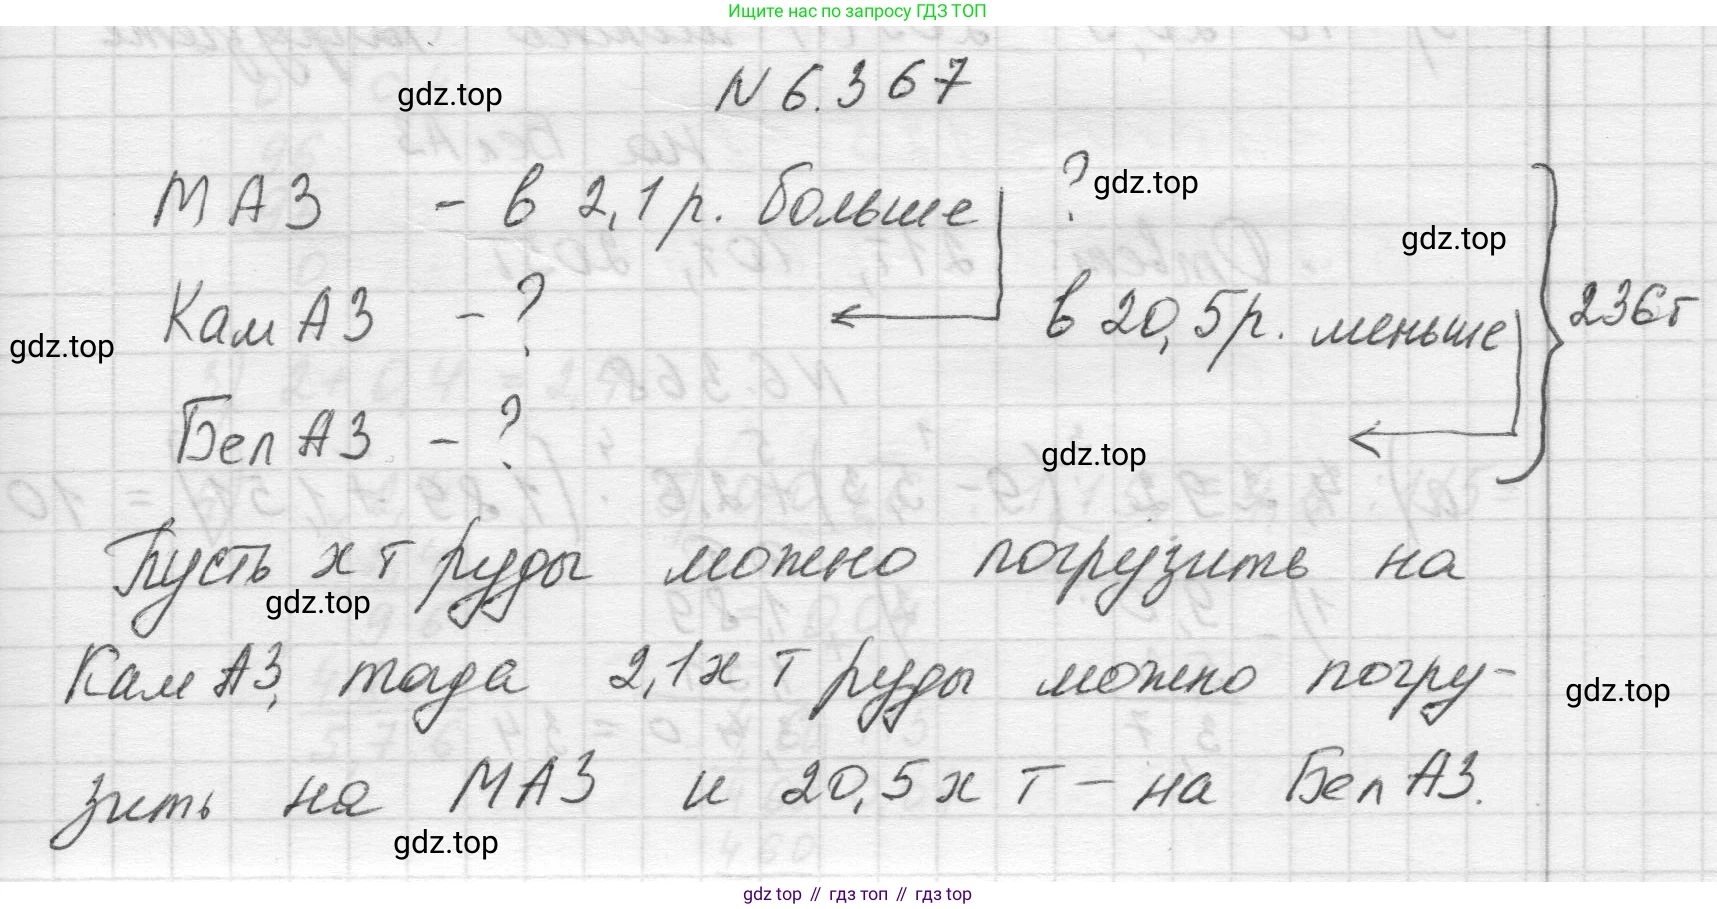 Ищите нас по запросу ГДЗ ТОП
gdz.top
N 6.367
МАЗ - в 2,1 р. больше ?
gdz.top
gdz.top
КамАЗ - ? в 20,5 р. меньше 236т
gdz.top
БелАЗ - ?
gdz.top
Пусть х т руды можно погрузить на
gdz.top
КамАЗ, тогда 2,1х т руды можно погру-
gdz.top
зить на МАЗ и 20,5х т - на БелАЗ.
gdz.top
gdz top // гдз топ // gdz top